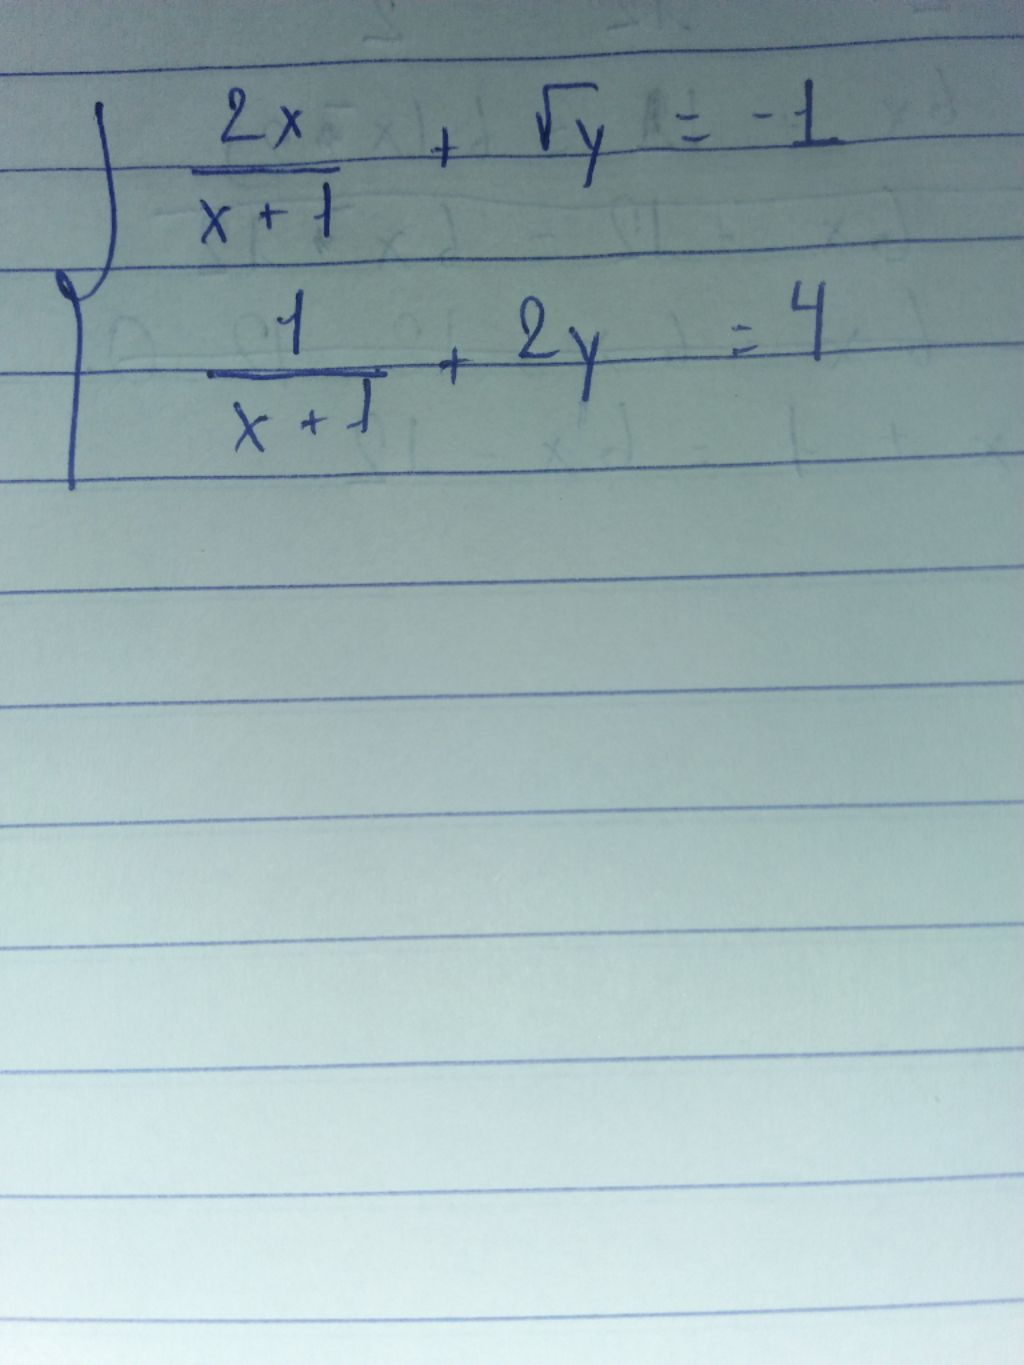 { 2x/(x + 1) + √y = -1
1/(x + 1) + 2y = 4